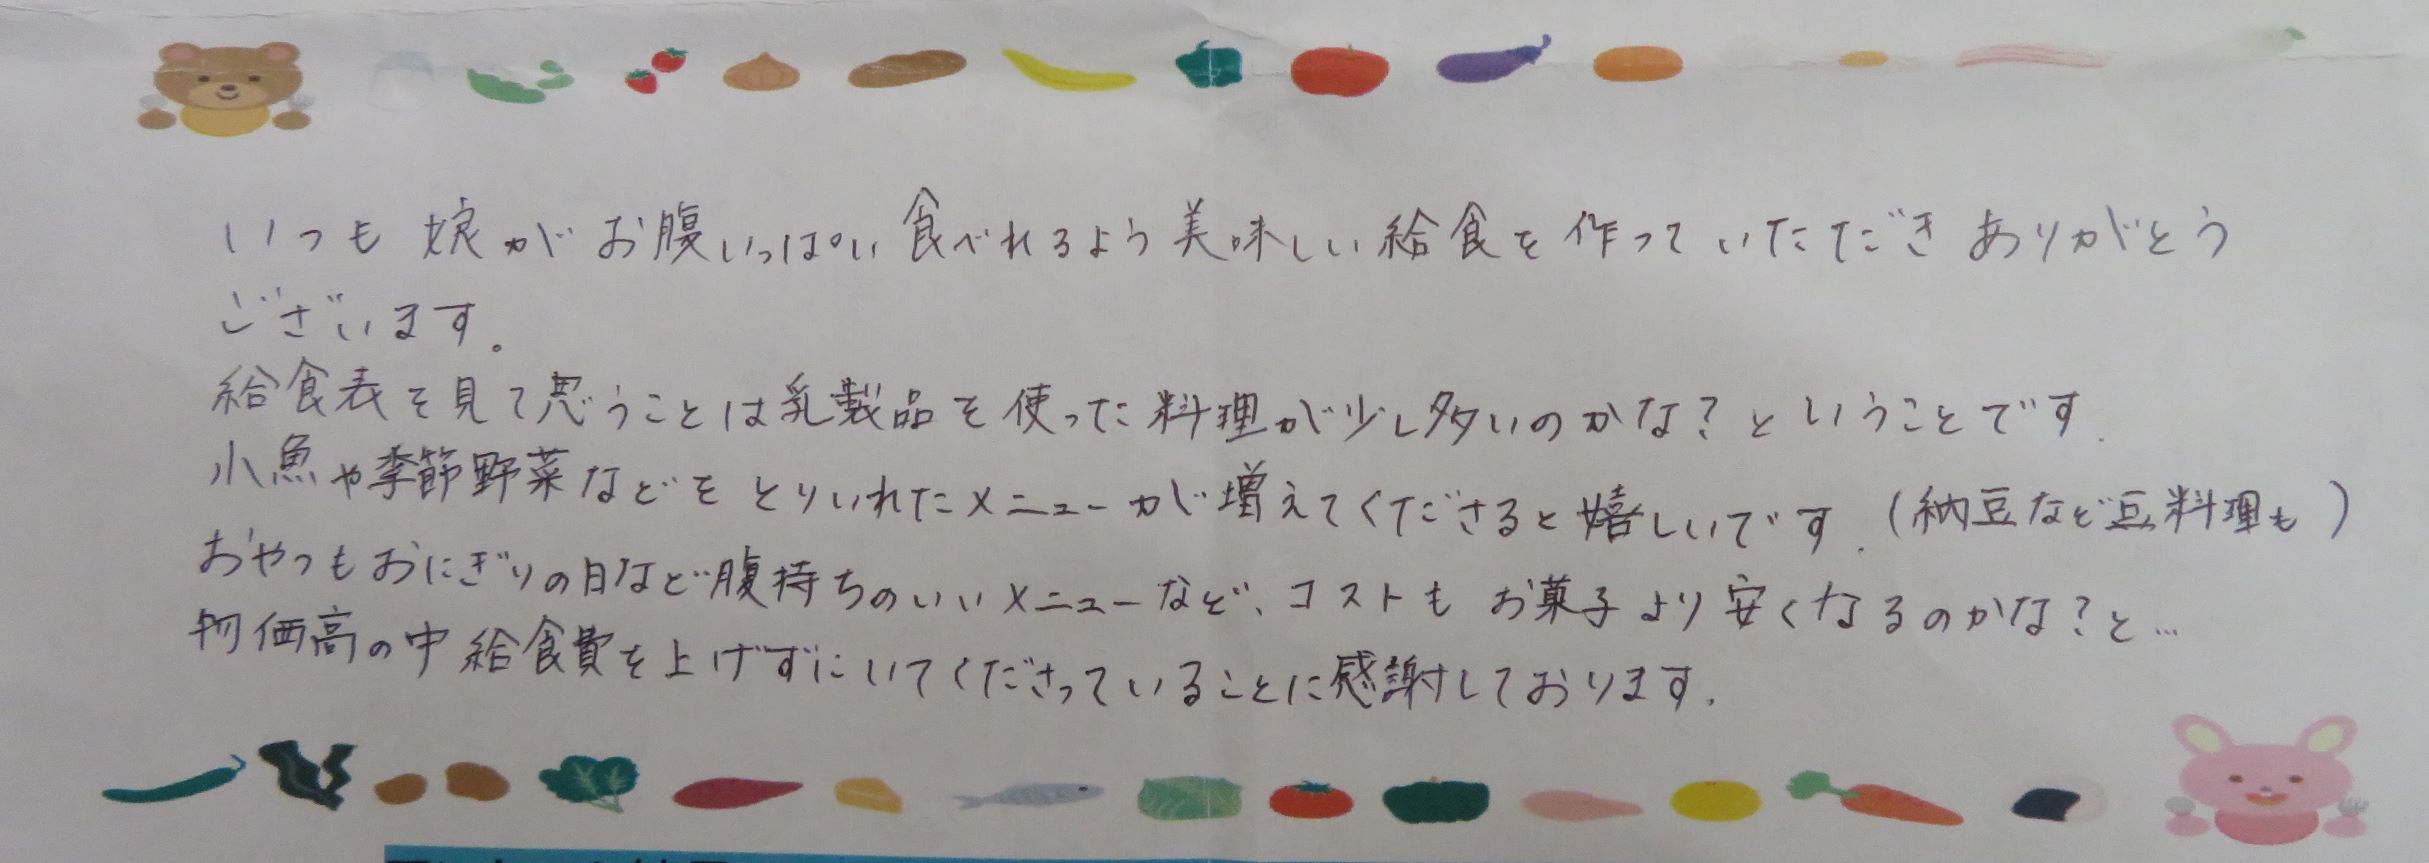 いつも娘がお腹いっぱい食べれるよう美味しい給食を作っていただきありがとう
ございます。
給食表を見て思うことは乳製品を使った料理が少し多いのかな?ということです.
小魚や季節野菜などをとりいれたメニューが増えてくださると嬉しいです.(納豆など豆料理も)
おやつもおにぎりの日など腹持ちのいいメニューなど、コストもお菓子より安くなるのかな?と…
物価高の中給食費を上げずにいてくださっていることに感謝しております.